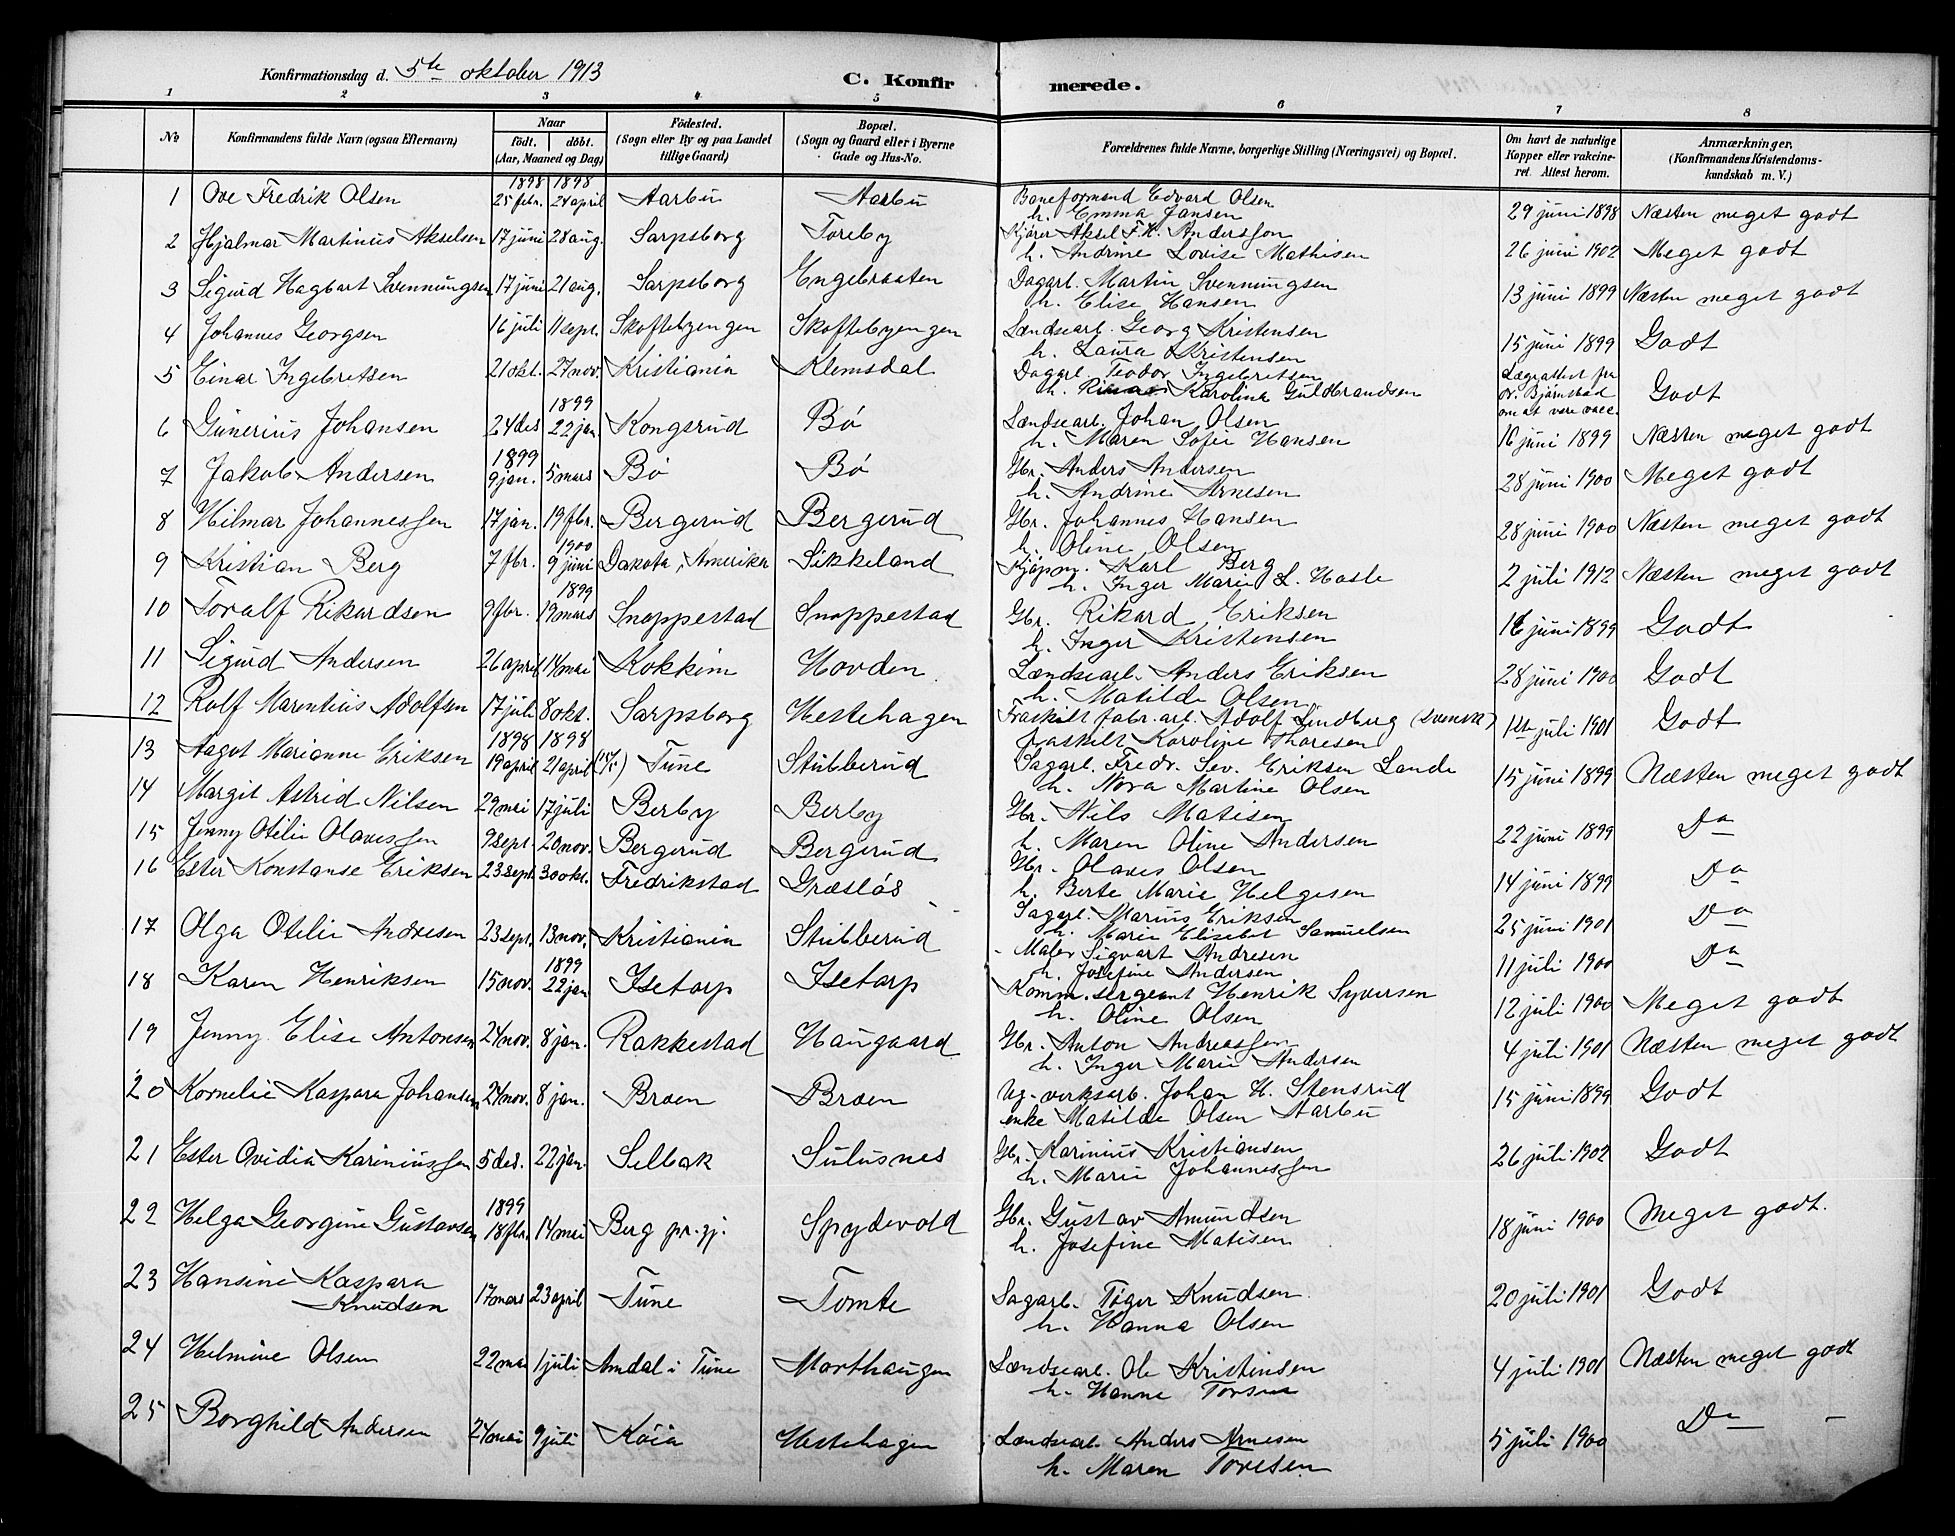 Konfirmationsdag d. 5te oktober 1913
C. Konfirmerede.
1 2 3 4 5 6 7 8
No | Konfirmandens fulde Navn (ogsaa Efternavn) | Naar født. døbt. (Aar, Maaned og Dag) | Fødested. (Sogn eller By og paa Landet tillige Gaard) | Bopæl. (Sogn og Gaard eller i Byerne Gade og Hus-No. | Forældrenes fulde Navne, borgerlige Stilling (Næringsvei) og Bopæl. | Om havt de naturlige Kopper eller vakcineret. Attest herom. | Anmærkninger. (Konfirmandens Kristendomskundskab m. V.)
1 Ove Fredrik Olsen 1898 25 febr. 1898 24 april Aarbu Aarbu Baneformand Edvard Olsen h. Emma Jansen 29 juni 1898 Næsten meget godt
2 Hjalmar Martinus Akselsen 17 juni 28 aug. Sarpsborg Toreby Kjører Aksel F.H. Anderssen h. Andrine Lovise Mathisen 26 juni 1902 Meget godt
3 Sigurd Hagbart Svenningsen 17 juni 21 aug. Sarpsborg Engebraaten Dagarb. Martin Svenningsen h. Elise Hansen 13 juni 1899 Næsten meget godt
4 Johannes Georgsen 16 juli 11 sept. Skoftebyengen Skoftebyengen Lændsearb. Georg Kristensen h. Laura Kristensen 15 juni 1899 Godt
5 Einar Ingebretsen 21 okt. 27 nov. Kristiania Klemsdal Dagarb. Teodor Ingebretsen h. Karoline Guldbrandsen Lægeattest fra dr. Bjørnstad om at være vacc. Godt
6 Gunerius Johansen 24 des 1899 22 jan. Kongsrud Bø Lændsearb. Johan Olsen h. Maren Sofie Hansen 16 juni 1899 Næsten meget godt
7 Jakob Andersen 1899 9 jan. 5 mars Bø Bø Gbr. Anders Andersen h. Andrine Arnesen 28 juni 1900 Meget godt
8 Hilmar Johannessen 17 jan. 19 fbr. Bergerud Bergerud Gbr. Johannes Hansen h. Oline Olsen 28 juni 1900 Næsten meget godt
9 Kristian Berg 7 fbr. 1900 9 juni Dakota, Amerika Sikkeland Kjøpm. Karl Berg h. Inger Marie L. Hasle 2 juli 1912 Næsten meget godt
10 Toralf Rikardsen 9 fbr. 1899 19 mars Snoppestad Snoppestad Gbr. Rikard Eriksen h. Inger Kristensen 16 juni 1899 Godt
11 Sigurd Andersen 26 april 14 mai Kokkim Hovden Lændsearb. Anders Eriksen h. Matilde Olsen 28 juni 1900 Godt
12 Rolf Marentius Adolfsen 17 juli 8 okt. Sarpsborg Hestehagen Fraskilt fabr. arb. Adolf Lindberg (Svensk) fraskilt Karoline Thoresen 1ste juli 1901 Godt
13 Aagot Marianne Eriksen 1898 19 april 1898 21 april Tune Stubberud Sagarb. Fredr. Sev. Eriksen Lande h. Nora Martine Olsen 15 juni 1899 Næsten meget godt
14 Margit Astrid Nilsen 29 mai 17 juli Berby Berby Gbr. Nils Matisen h. Maren Oline Andersen 22 juni 1899 Do
15 Jenny Otilie Olavessen 9 sept. 20 nov. Bergerud Bergerud Gbr. Olaves Olsen h. Berte Marie Helgesen 14 juni 1899 Do
16 Ester Konstanse Eriksen 23 sept. 30 okt. Fredrikstad Græsløs Sagarb. Marius Eriksen h. Marie Elisebet Samuelsen 25 juni 1901 Do
17 Olga Otilie Andresen 23 sept. 13 nov. Kristiania Stubberud Maler Sigvart Andresen h. Josefine Andersen 11 juli 1900 Do
18 Karen Henriksen 15 nov. 1899 22 jan Isetorp Isetorp Komm. sergeant Henrik Syversen h. Oline Olsen 12 juli 1900 Meget godt
19 Jenny Elise Antonsen 24 nov. 8 jan. Rakkestad Haugaard Gbr. Anton Andreassen h. Inger Marie Andersen 4 juli 1901 Næsten meget godt
20 Kornelie Kaspara Johansen 24 nov. 8 jan. Bræen Bræen Ug. verksarb. Johan H. Stensrud enke Matilde Olsen Aarbu 15 juni 1899 Godt
21 Ester Ovidia Kariniussen 5 des. 22 jan. Selbak Sulusnes Gbr. Karinius Kristiansen h. Marie Johannessen 26 juli 1902 Godt
22 Helga Georgine Gustavsen 1899 18 fbr. 14 mai Berg pr. gj. Spydevold Gbr. Gustav Amundsen h. Josefine Matisen 18 juni 1900 Meget godt.
23 Hansine Kaspara Knudsen 17 mars 23 april Tune Tomte Sagarb. Tøger Knudsen h. Hanna Olsen 20 juli 1901 Godt
24 Helmine Olsen 22 mai 1 juli Amdal i Tune Morthaugen Lændsearb. Ole Kristinsen h. Hanne 4 juli 1901 Næsten meget godt
25 Borghild Andersen 24 mai 9 juli Køia Hestehagen Lændsearb. Anders Arnesen h. Maren Toresen 5 juli 1900 Do